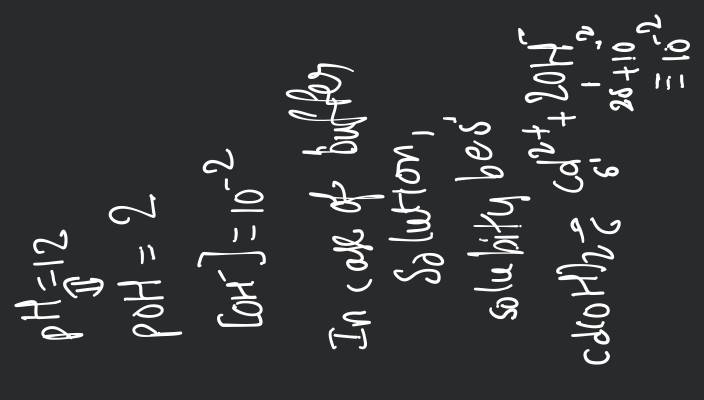 pH = 12
⇓
pOH = 2
[OH⁻] = 10⁻²
In case of buffer
Solution,
solubity be s'
Cd(OH)₂ ⇌ Cd²⁺ + 2OH⁻
s' 2s' + 10⁻²
≡ 10⁻²